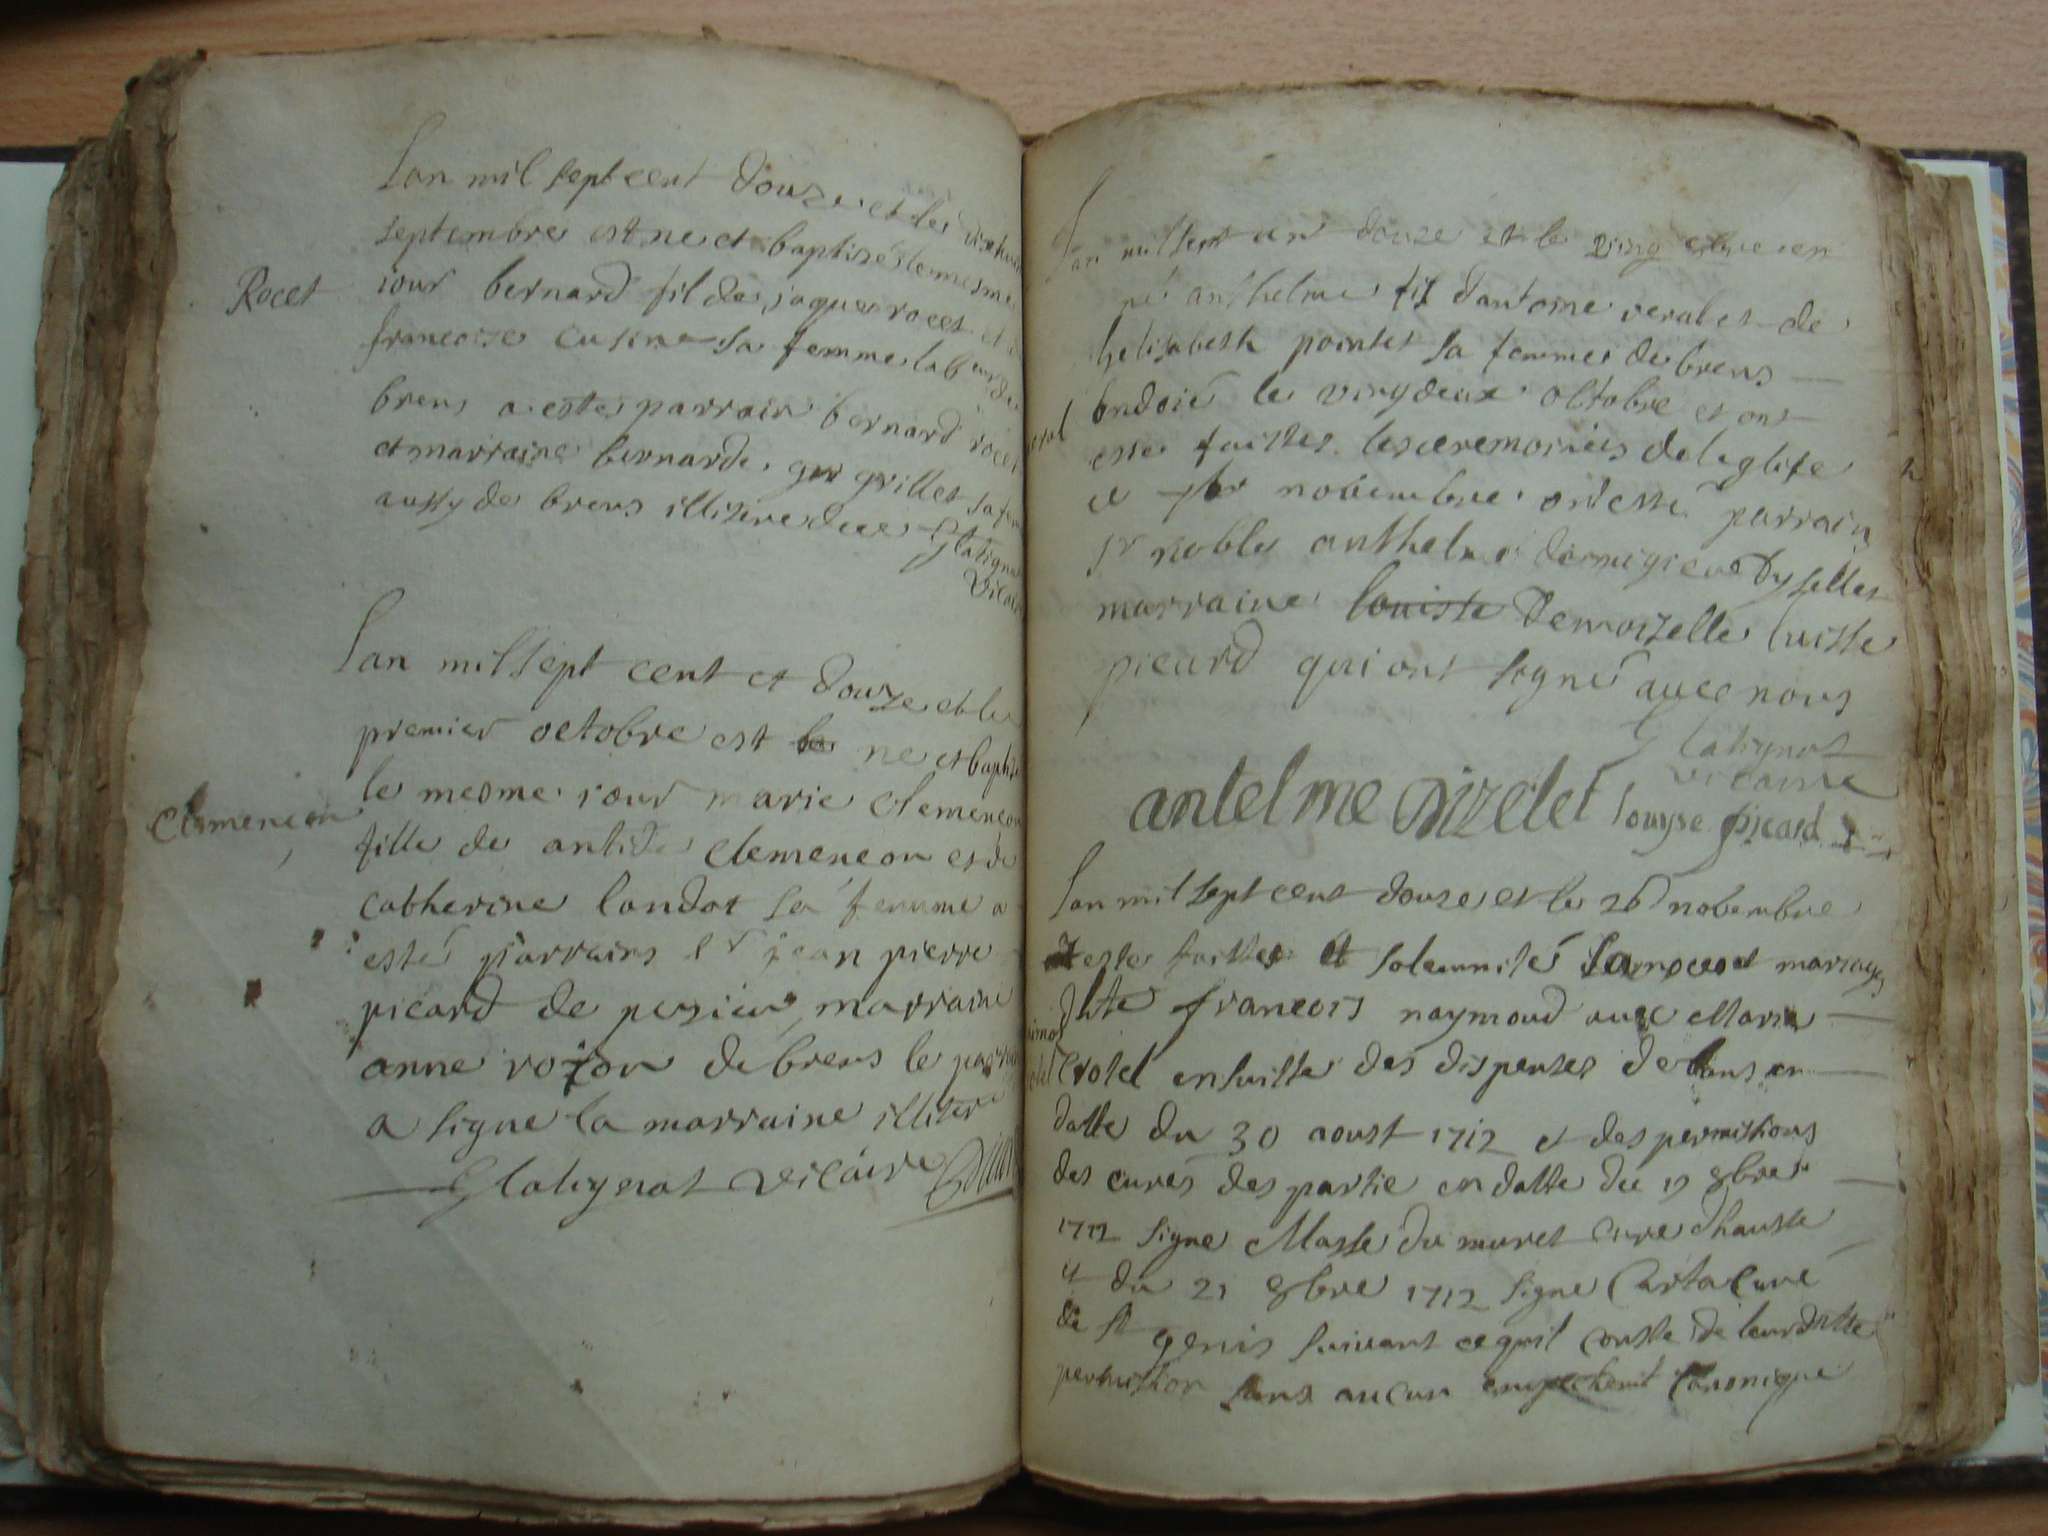 Rocet
Lan mil sept cent douze et le dixhuit
septembre est ne et baptisé le mesme
iour bernard fil de jaques rocet et de
francoise cusine sa femme lab
brens a esté parrain bernard rocet
et marraine bernarde grillet sa fem
aussy de brens illitere Glatignat
vicair
Clemencon
Lan mil sept cent et douze et le
premier octobre est ne et baptise
le mesme iour marie clemencon
fille de antide clemencon et de
catherine landot sa femme a
esté parrains sr jean pierre
picard de pezieu marraine
anne roton de brens le parrain
a signe la marraine illitere
Glatignat vicaire
veral
Lan mil sept cent douze et le vingt
né anthelme fil dantoine veralet de
helizabeth pointet sa femme de brens
ondoié le vingdeux octobre et ont
esté faittes les ceremonies de leglise
le novembre ont esté parrain
sr noble anthelme
marraine louisse demoizelle luisse
picard qui ont signé avec nous
Glatignat
vicaire
antelme Dizelet louyse picard
Lan mil sept cent douze et le 26 novembre
esté faittes et solemnisé mariage
dhte francois raymond avec Marie
Crotel ensuitte des dispenses de bans en
datte du 30 aoust 1712 et des permissions
des curés des partie en datte du 19 9bre
1712 signe Masse du muret cure dhauste
et du 21 9bre 1712 signe Curta Curé
de st genis suivant ce quil conste de leurdatte
permission sans aucun empechemt canonique